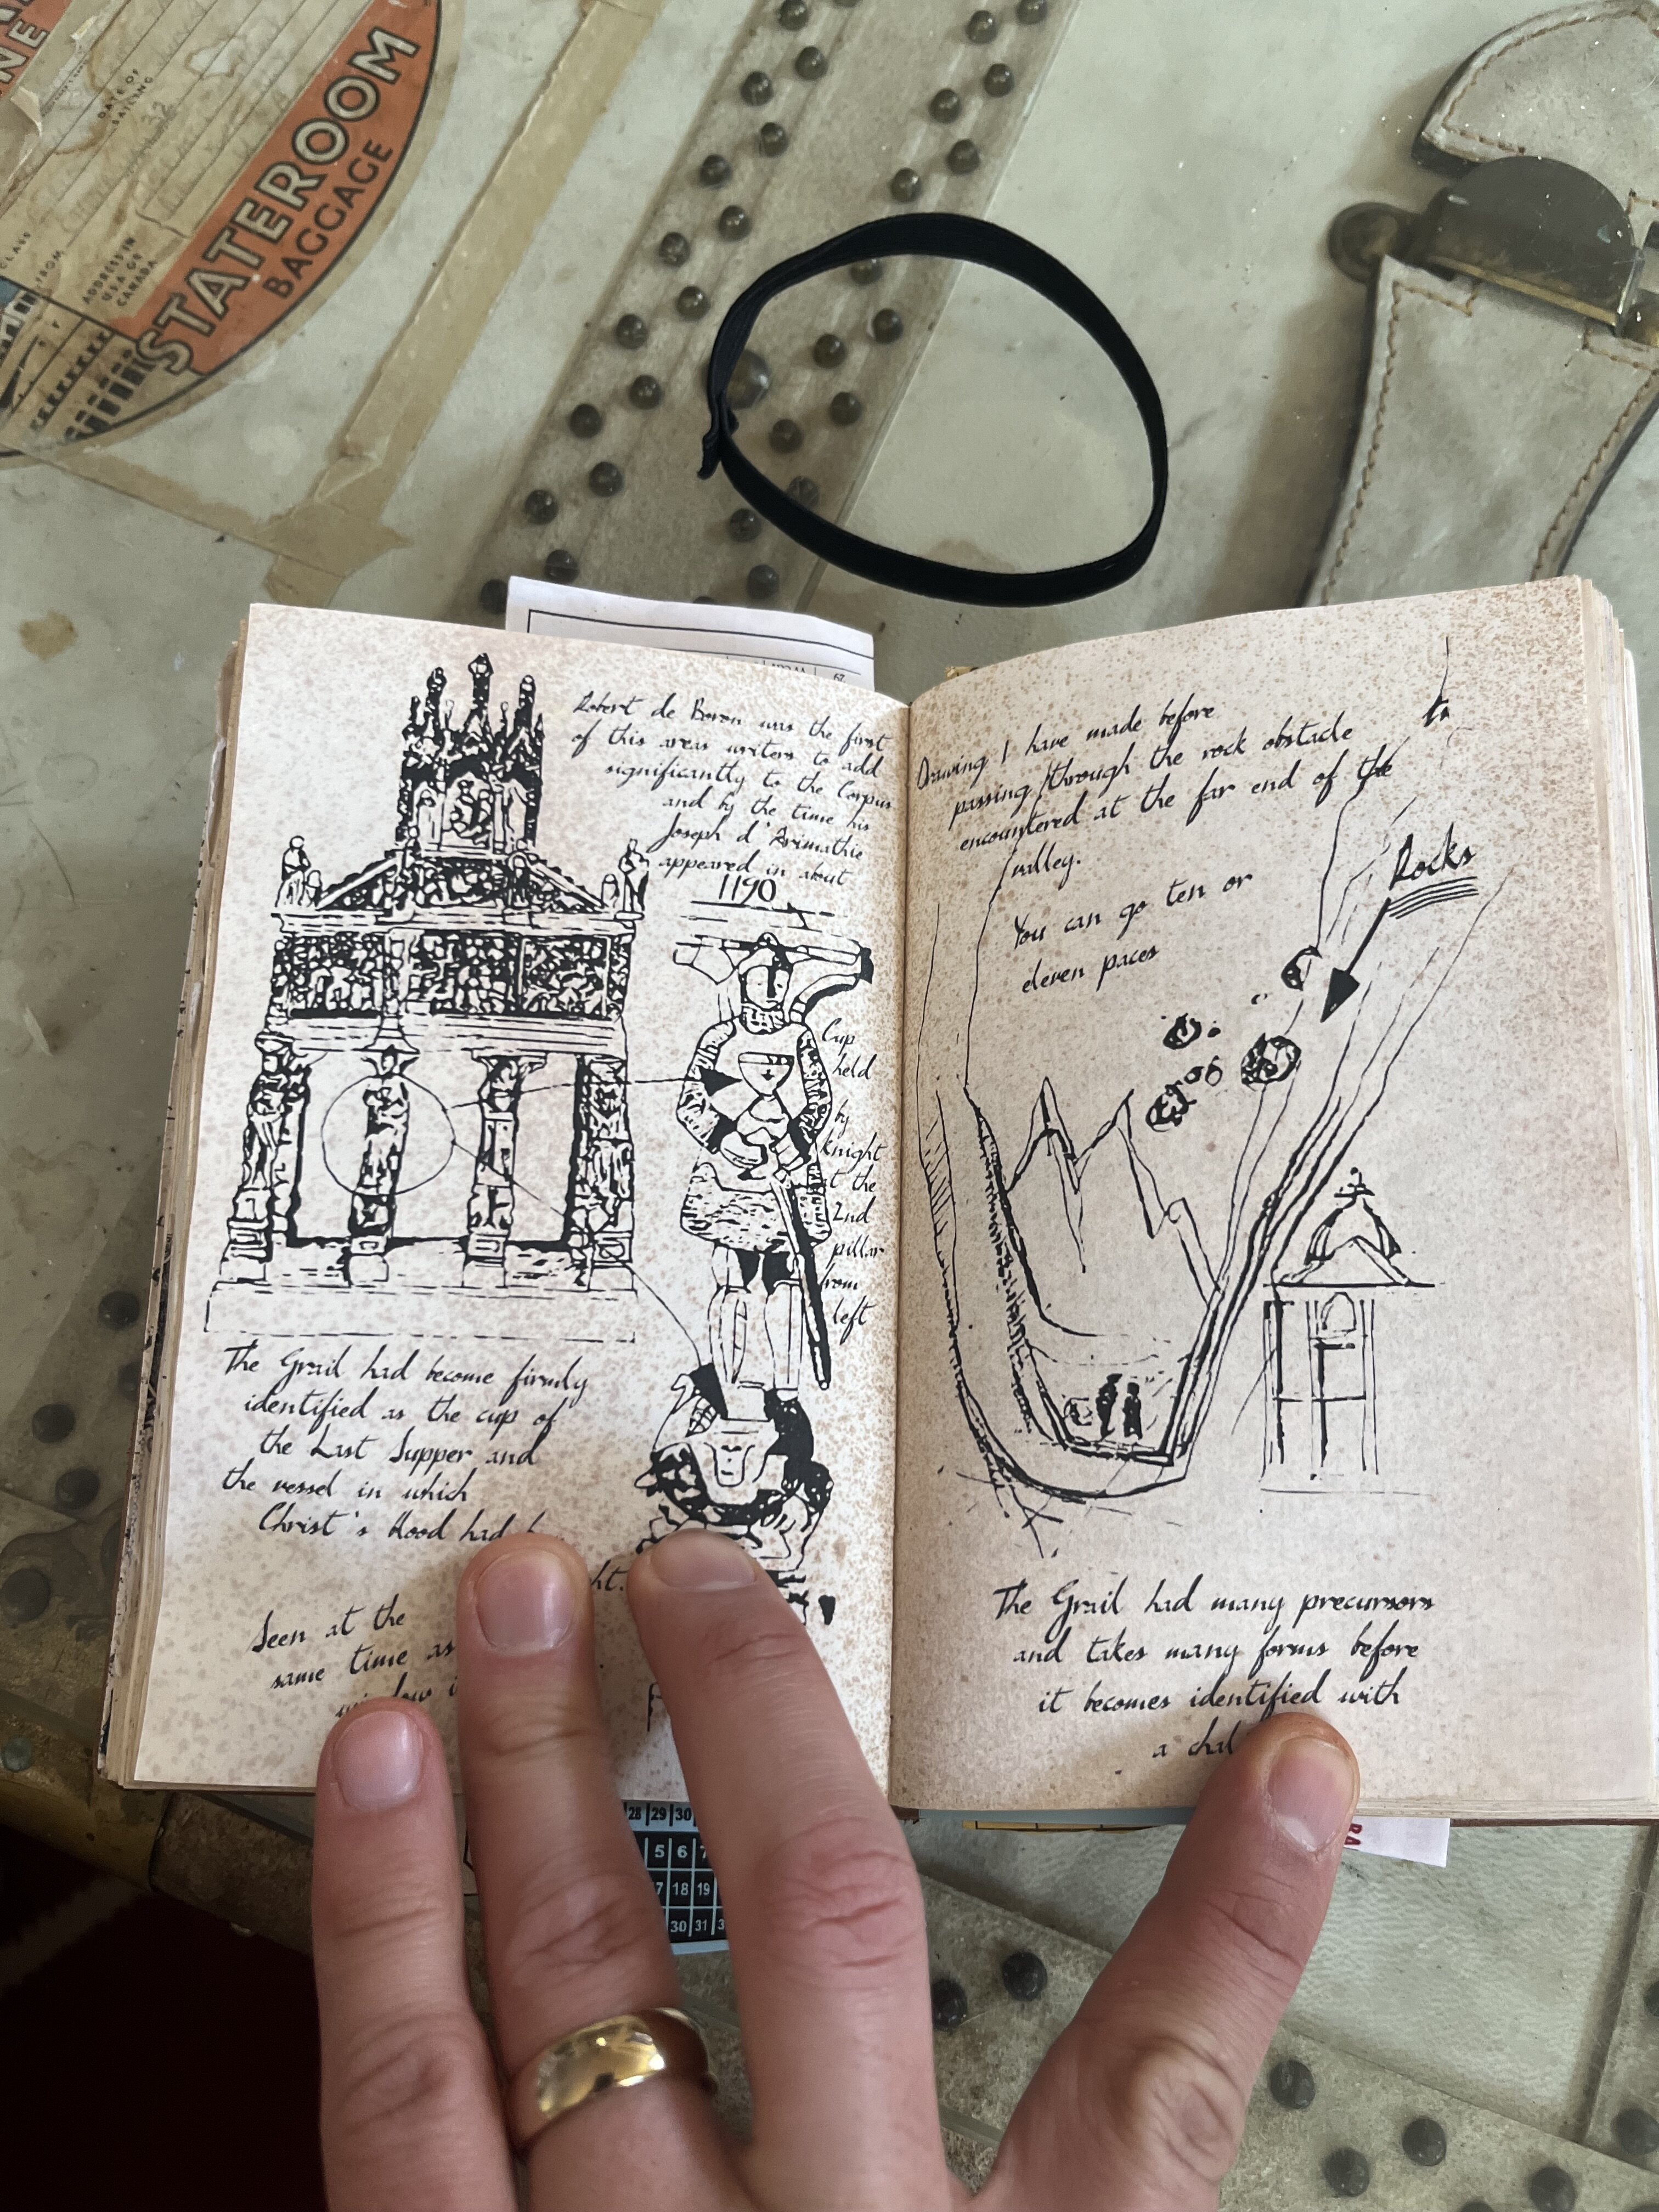 STATEROOM
BAGGAGE
DATE OF
SAILING
CLASS
FROM
ADDRESS IN
U.S.A. OR
CANADA
NE
Robert de Boron was the first
of this areas writers to add
significantly to the Corpus
and by the time his
Joseph d'Arimathie
appeared in about
1190
Cup
held
by
knight
at the
2nd
pillar
from
left
The Grail had become firmly
identified as the cup of
the Last Supper and
the vessel in which
Christ's blood had
ht.
Seen at the
same time as
window
Drawing I have made before
passing through the rock obstacle
encountered at the far end of the
valley.
You can go ten or
eleven paces
Rocks
The Grail had many precursors
and takes many forms before
it becomes identified with
a chal
28 29 30
5 6 7
17 18 19
30 31